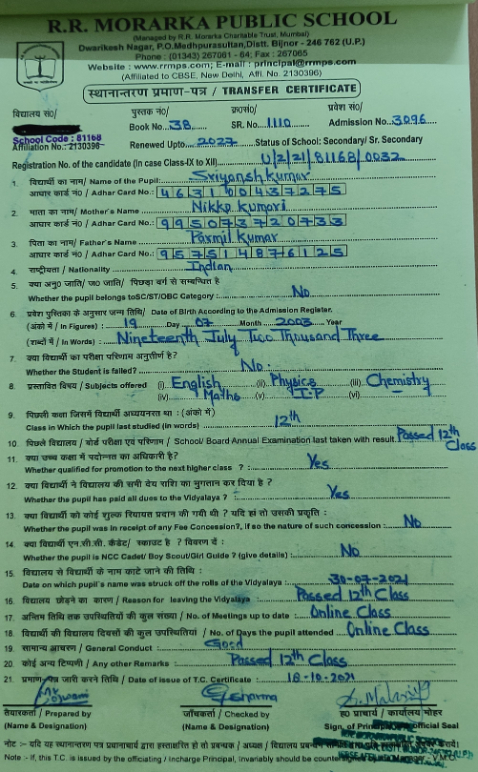 R.R. MORARKA PUBLIC SCHOOL
(Managed by R.R. Morarka Charitable Trust, Mumbai)
Dwarikesh Nagar, P.O.Medhpurasultan,Distt. Bijnor - 246 762 (U.P.)
Phone : (01343) 267061 - 64; Fax : 267065
Website : www.rrmps.com; E-mail : principal@rrmps.com
(Affiliated to CBSE, New Delhi, Affi. No. 2130396)
स्थानान्तरण प्रमाण-पत्र / TRANSFER CERTIFICATE
विद्यालय सं०/ पुस्तक नं०/ क्र०सं०/ प्रवेश सं०/
Book No. 38 SR. No. 1110 Admission No. 3096
School Code : 81168
Affiliation No. : 2130396 Renewed Upto. 2027 Status of School: Secondary/ Sr. Secondary
Registration No. of the candidate (In case Class-IX to XII) U/2/21/81168/0032
1. विद्यार्थी का नाम/ Name of the Pupil: Sriyansh Kumar
आधार कार्ड नं० / Adhar Card No.: 463100437275
2. माता का नाम/ Mother's Name Nikkp Kumari
आधार कार्ड नं० / Adhar Card No.: 995073720733
3. पिता का नाम/ Father's Name Parmil Kumar
आधार कार्ड नं० / Adhar Card No.: 957514876125
4. राष्ट्रीयता / Nationality Indian
5. क्या अनु० जाति/ ज० जाति/ पिछड़ा वर्ग से सम्बन्धित है
Whether the pupil belongs toSC/ST/OBC Category : No
6. प्रवेश पुस्तिका के अनुसार जन्म तिथि/ Date of Birth According to the Admission Register.
(अंको में / In Figures) : 19 Day 07 Month 2003 Year
(शब्दों में / In Words) : Nineteenth July Two Thousand Three
7. क्या विद्यार्थी का परीक्षा परिणाम अनुत्तीर्ण है?
Whether the Student is failed? No.
8. प्रस्तावित विषय / Subjects offered (i) English (ii) Physics (iii) Chemistry
(iv) Maths (v) I.P (vi)
9. पिछली कक्षा जिसमें विद्यार्थी अध्ययनरत था : (अंको में)
Class in Which the pupil last studied (in words) 12th
10. पिछले विद्यालय / बोर्ड परीक्षा एवं परिणाम / School/ Board Annual Examination last taken with result. Passed 12th Class
11. क्या उच्च कक्षा में पदोन्नत का अधिकारी है?
Whether qualified for promotion to the next higher class ? : Yes
12. क्या विद्यार्थी ने विद्यालय की सभी देय राशि का भुगतान कर दिया है ?
Whether the pupil has paid all dues to the Vidyalaya ? : Yes
13. क्या विद्यार्थी को कोई शुल्क रियायत प्रदान की गयी थी ? यदि हां तो उसकी प्रकृति :
Whether the pupil was in receipt of any Fee Concession?, If so the nature of such concession : No
14. क्या विद्यार्थी एन.सी.सी. कैडेट/ स्काउट है ? विवरण दें :
Whether the pupil is NCC Cadet/ Boy Scout/Girl Guide ? (give details) : No
15. विद्यालय से विद्यार्थी के नाम काटे जाने की तिथि :
Date on which pupil's name was struck off the rolls of the Vidyalaya : 30-07-2021
16. विद्यालय छोड़ने का कारण / Reason for leaving the Vidyalaya Passed 12th Class
17. अन्तिम तिथि तक उपस्थितियों की कुल संख्या / No. of Meetings up to date : Online Class
18. विद्यार्थी की विद्यालय दिवसों की कुल उपस्थितियां / No. of Days the pupil attended Online Class
19. सामान्य आचरण / General Conduct : Good
20. कोई अन्य टिप्पणी / Any other Remarks : Passed 12th Class
21. प्रमाण-पत्र जारी करने तिथि / Date of issue of T.C. Certificate : 18-10-2021
Goswami Sharma
तैयारकर्ता / Prepared by जाँचकर्ता / Checked by ह० प्राचार्य / कार्यालय मोहर
(Name & Designation) (Name & Designation) Sign. of Principal official Seal
नोट :- यदि यह स्थानान्तरण पत्र प्रधानाचार्य द्वारा हस्ताक्षरित हो तो प्रबन्धक / अध्यक्ष / विद्यालय
Note :- If, this T.C. is issued by the officiating / Incharge Principal, Invariably should be countersigned by V.M.C.